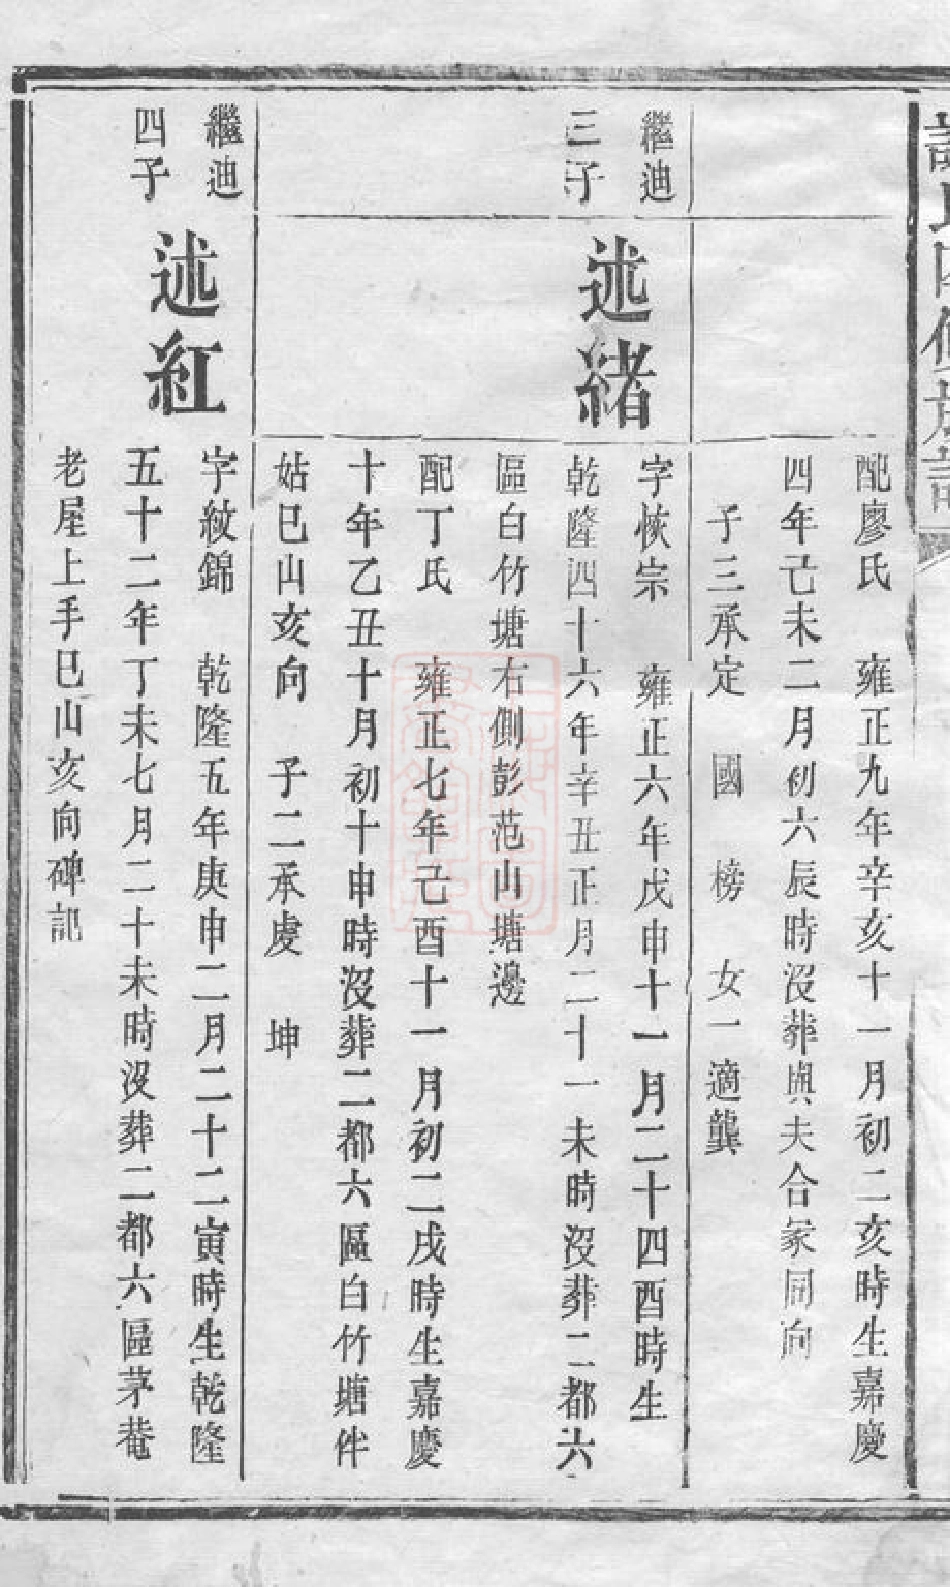 氏四修族譜
配廖氏 雍正九年辛亥十一月初二亥時生嘉慶
四年己未二月初六辰時沒葬與夫合冢同向
子三承定 國 榜 女一適龔
繼迪
三子
述緒
字恢宗 雍正六年戊申十一月二十四酉時生
乾隆四十六年辛丑正月二十一未時沒葬二都六
區白竹塘右側彭范山塘邊
配丁氏 雍正七年己酉十一月初二戌時生嘉慶
十年乙丑十月初十申時沒葬二都六區白竹塘伴
姑巳山亥向 子二承虔 坤
繼迪
四子
述紅
字紋錦 乾隆五年庚申二月二十二寅時生乾隆
五十二年丁未七月二十未時沒葬二都六區茅菴
老屋上手巳山亥向碑記